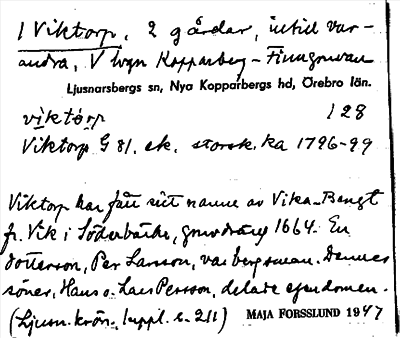 1 Viktorp, 2 gårdar, intill var-
andra, V lvgn Kopparberg – Finngruvan
Ljusnarsbergs sn, Nya Kopparbergs hd, Örebro län.
viktórp 128
Viktorp G 81. ek. storsk.ka 1796-99
Viktorp har fått sitt namn av Vika-Bengt
fr. Vik i Söderbärke, gruvdräng 1664. En
dotterson, Per Larsson, var bergsman. Dennes
söner, Hans o. Lars Persson, delade egendomen.
(Ljusn. krön. suppl. s. 211) MAJA FORSSLUND 1947